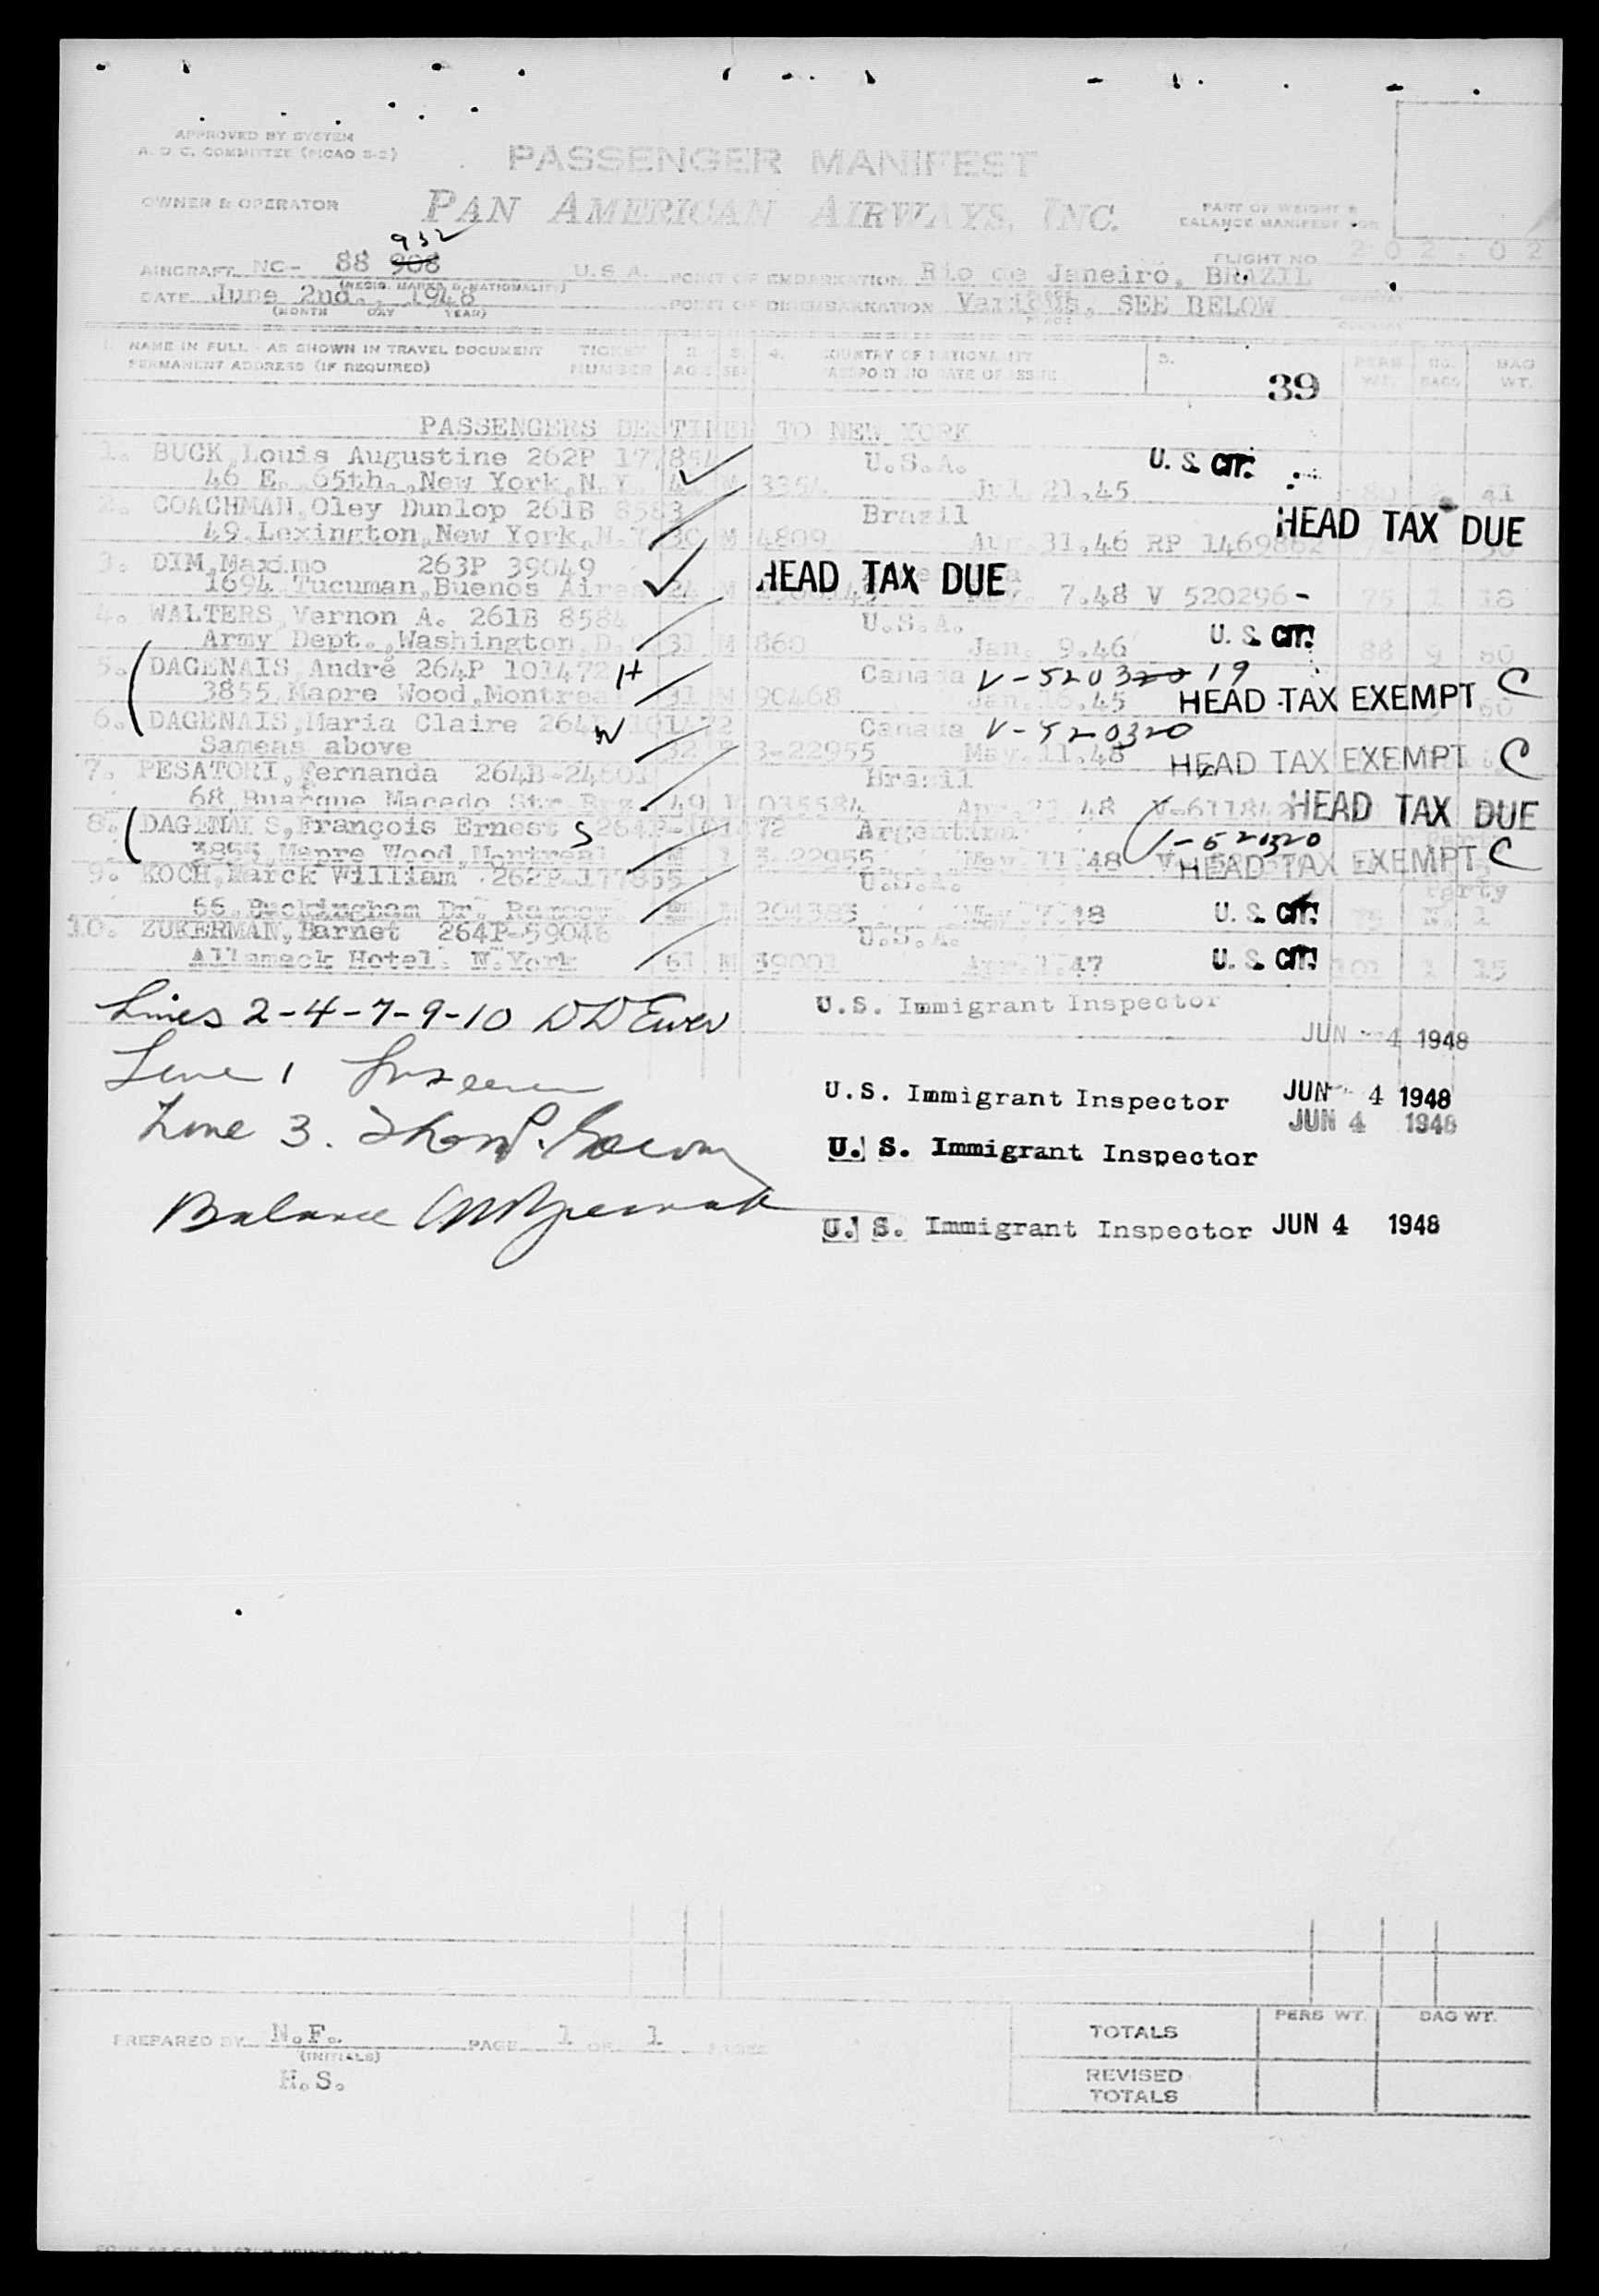 APPROVED BY SYSTEM
A. O C. COMMITTEE (PICAO S-2)
PASSENGER MANIFEST
OWNER & OPERATOR PAN AMERICAN AIRWAYS, INC.
PART OF WEIGHT &
BALANCE MANIFEST FOR
932
AIRCRAFT NC- 88 908 U.S A. POINT OF EMBARKATION Rio de Janeiro, BRAZIL FLIGHT NO. 202 . 02
(REGIS. MARKS & NATIONALITY)
DATE June 2nd., 1948 POINT OF DISEMBARKATION Various, SEE BELOW
(MONTH DAY YEAR) PLACE COUNTRY
1. NAME IN FULL - AS SHOWN IN TRAVEL DOCUMENT TICKET 2. 3. 4. COUNTRY OF NATIONALITY 5. PERS. NO. BAG
PERMANENT ADDRESS (IF REQUIRED) NUMBER AGE SEX PASSPORT NO DATE OF ISSUE WT. BAGS WT.
39
PASSENGERS DESTINED TO NEW YORK
1. BUCK,Louis Augustine 262P 177854 U.S.A. U. S. CIT.
46 E. 65th.,New York,N.Y. M 3354 Jul 21.45 41
2. COACHMAN,Oley Dunlop 261B 8583 Brazil HEAD TAX DUE
49,Lexington,New York,N.Y. 30 M 4809 Aug.31.46 RP 1469862
3. DIM,Maximo 263P 39049 HEAD TAX DUE
1694 Tucuman,Buenos Aires 24 M May. 7.48 V 520296- 75 1 18
4. WALTERS,Vernon A. 261B 8584 U.S.A. U. S. CIT.
Army Dept.,Washington,D. 31 M 860 Jan. 9.46 88 9 60
5. DAGENAIS,André 264P 101472 H Canada V-520320 19
3855,Mapre Wood,Montreal 31 M 90468 Jan.16.45 HEAD TAX EXEMPT C
6. DAGENAIS,Maria Claire 264P 101472 W Canada V-520320
Sameas above 32 F 3-22955 May.11.48 HEAD TAX EXEMPT C
7. PESATORI,Fernanda 264B-24601 Brazil
68 Buarque Macedo Str 49 F 035584 Apr.21 48 HEAD TAX DUE
8. DAGENAIS,François Ernest S 264P-101472 Argentina V-520320
3855,Mapre Wood,Montreal M 3-22955 May 11.48 HEAD TAX EXEMPT C
9. KOCH,Marck William 262P-177855 U.S.A. Party
66,Buckingham Dr. M May 7 48 U. S. CIT. 75 N. 1
10. ZUKERMAN,Barnet 264P-59046 U.S.A.
Allameck Hotel. N.York 61 M 39001 Apr.1.47 U. S. CIT. 101 1 15
Lines 2-4-7-9-10 U.S. Immigrant Inspector
JUN - 4 1948
Line 1 U.S. Immigrant Inspector JUN - 4 1948
JUN 4 1948
Line 3. U. S. Immigrant Inspector
Balance U. S. Immigrant Inspector JUN 4 1948
PREPARED BY N.F. PAGE 1 OF 1 PAGES
(INITIALS)
H.S.
PERS WT. BAG WT.
TOTALS
REVISED
TOTALS